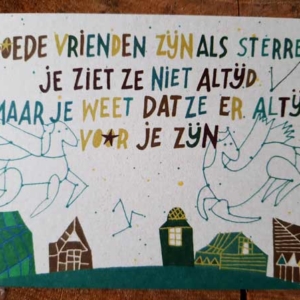 OEDE VRIENDEN ZIJN ALS STERRE
JE ZIET ZE NIET ALTIJD
MAAR JE WEET DAT ZE ER ALTIJ
VOOR JE ZIJN